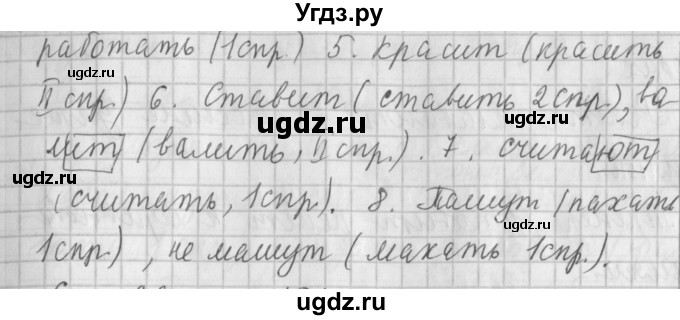 Угдз.ру
работать (1спр.) 5. Красит (красить
II спр.) 6. Ставит (ставить 2спр.), ва-
лит (валить, II спр.). 7. считают
(считать, 1спр.). 8. Пашут (пахать
1спр.), не машут (махать 1спр.).
ugdz.ru
ugdz.ru
ugdz.ru
ugdz.ru
ugdz.ru
ugdz.ru
ugdz.ru
ugdz.ru
ugdz.ru